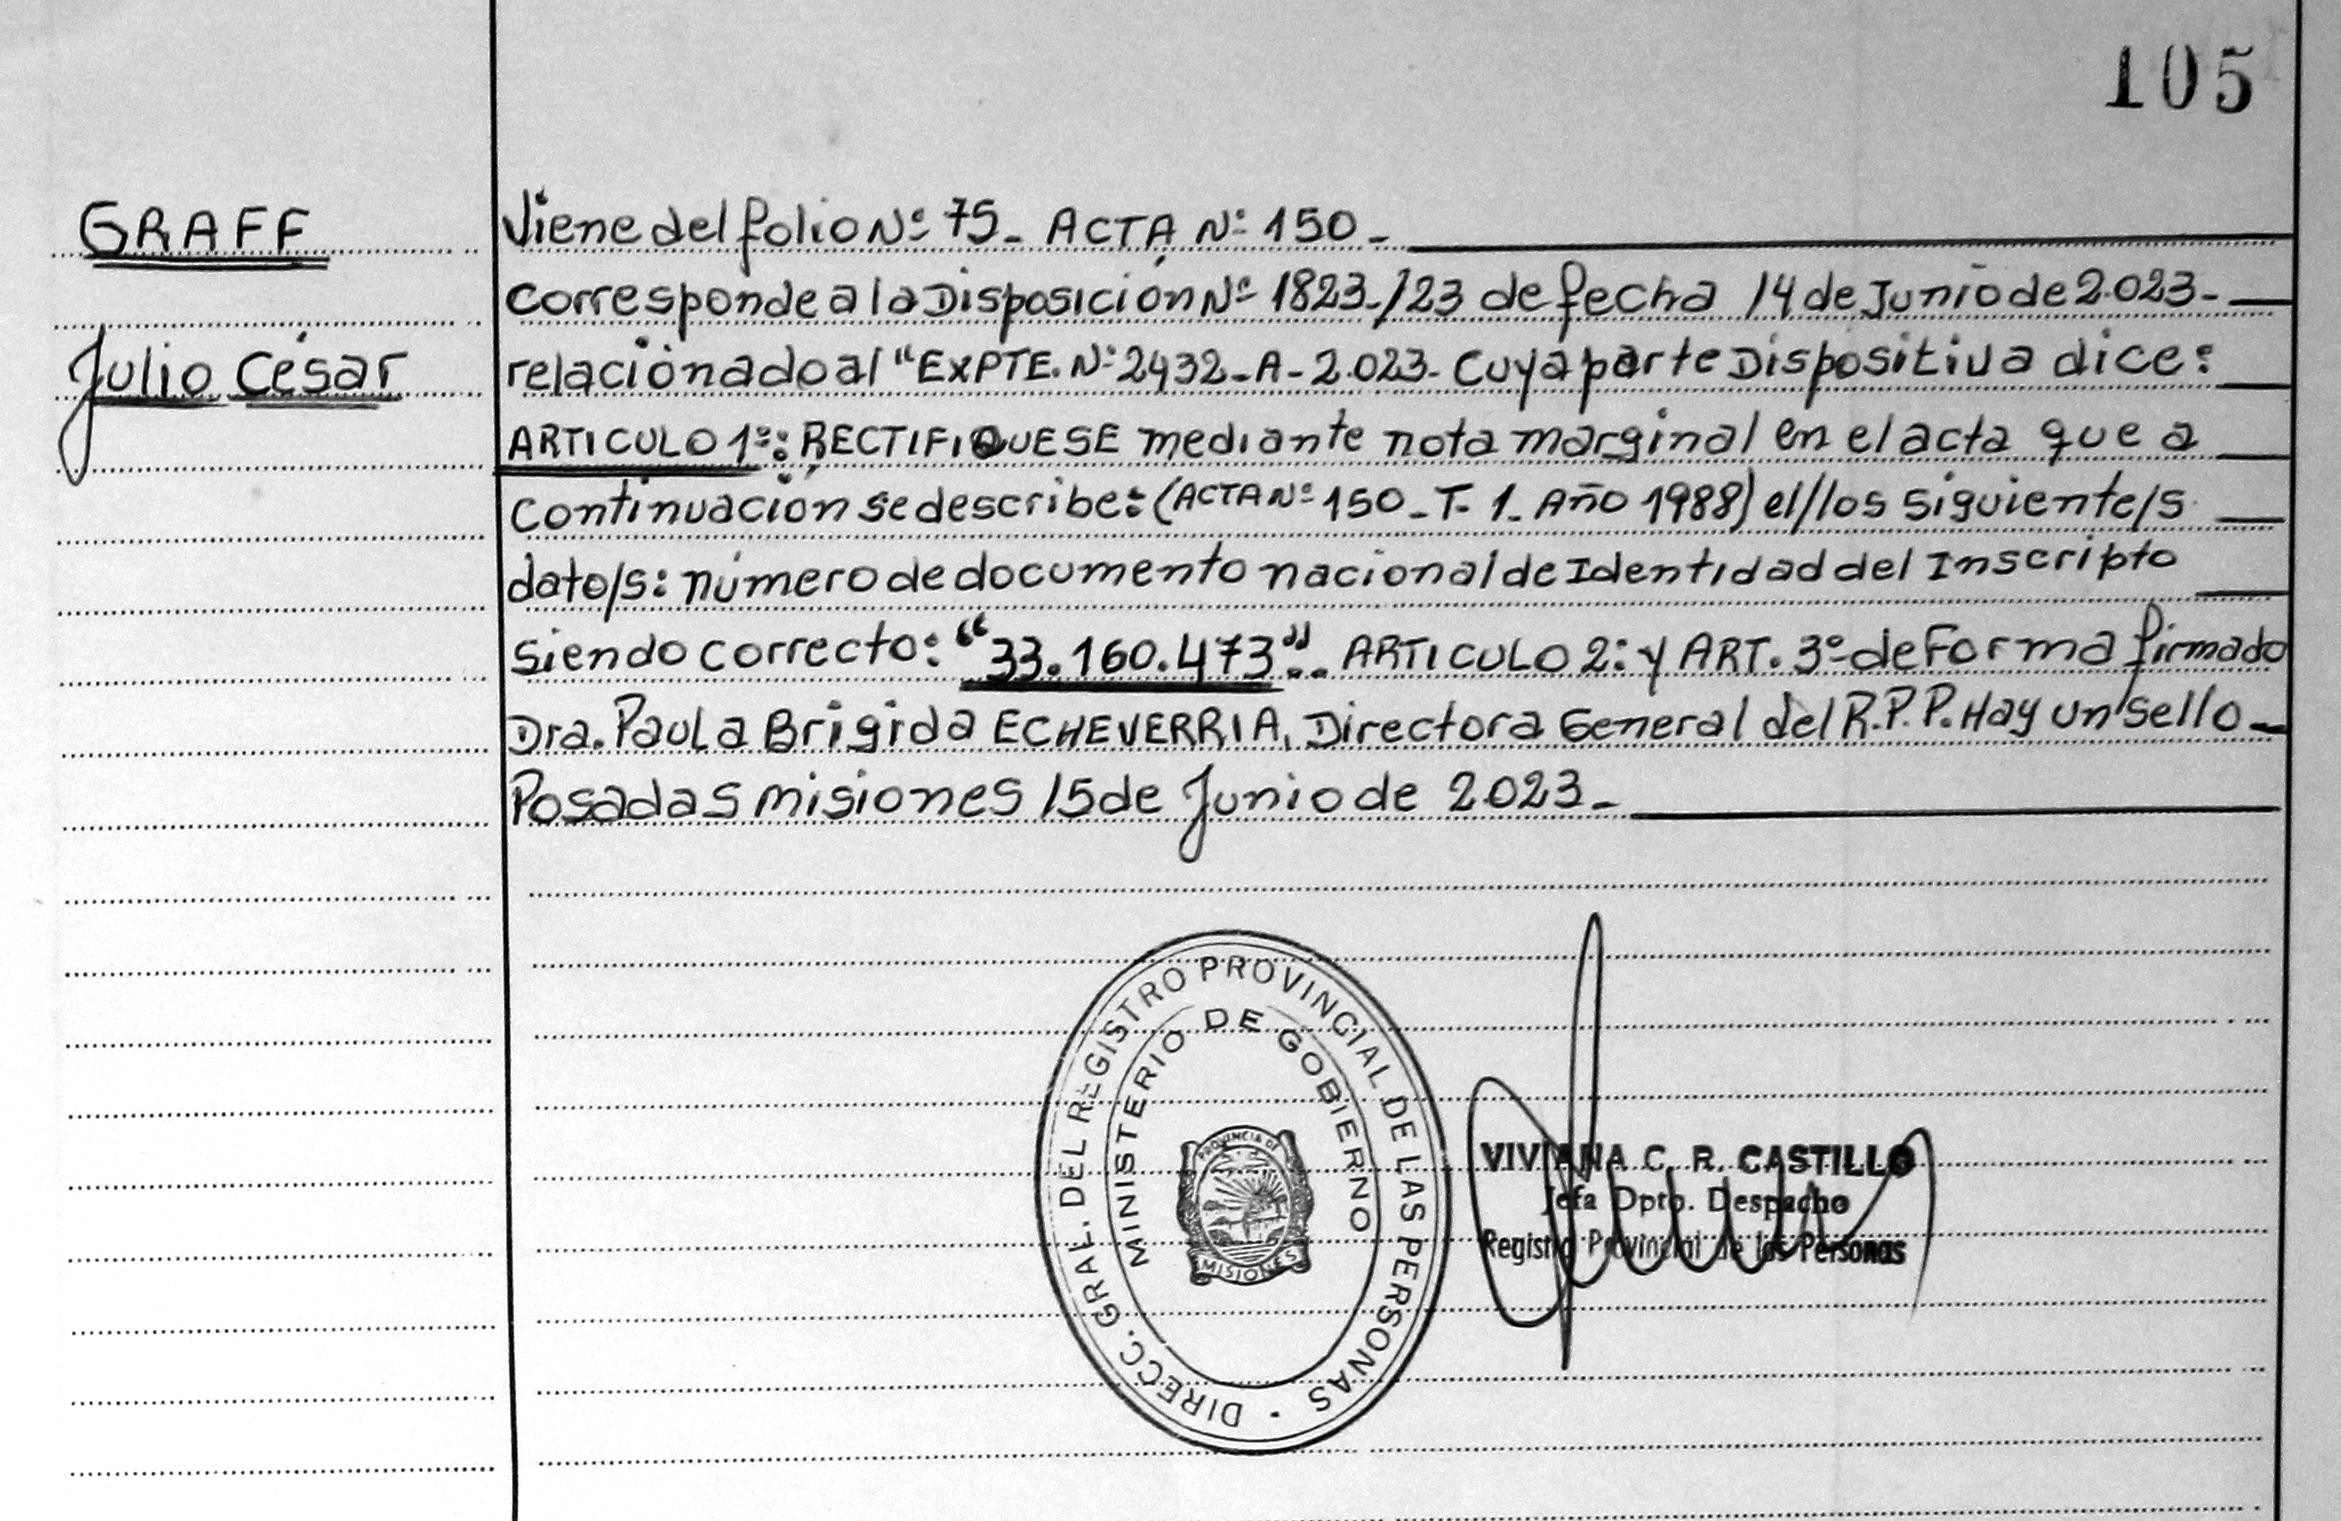 105
GRAFF
Julio César
Viene del folio Nº 75_ ACTA Nº 150_
Corresponde a la Disposición Nº 1823_/23 de fecha 14 de Junio de 2.023_
relacionado al "EXPTE. Nº 2432_A_2.023_ Cuya parte Dispositiva dice:
ARTICULO 1º: RECTIFIQUESE mediante nota marginal en el acta que a
Continuación se describe: (ACTA Nº 150_T_1_ AÑO 1988) el/los siguiente/s
dato/s: número de documento nacional de Identidad del Inscripto
siendo correcto: "33.160.473"._ ARTICULO 2: y ART. 3º de Forma firmado
Dra. Paula Brigida ECHEVERRIA, Directora General del R.P.P. Hay un sello_
Posadas misiones 15 de Junio de 2.023_
DIRECC. GRAL. DEL REGISTRO PROVINCIAL DE LAS PERSONAS
MINISTERIO DE GOBIERNO
PROVINCIA DE
MISIONES
VIVIANA C. R. CASTILLO
Jefa Dpto. Despacho
Registro Provincial de las Personas